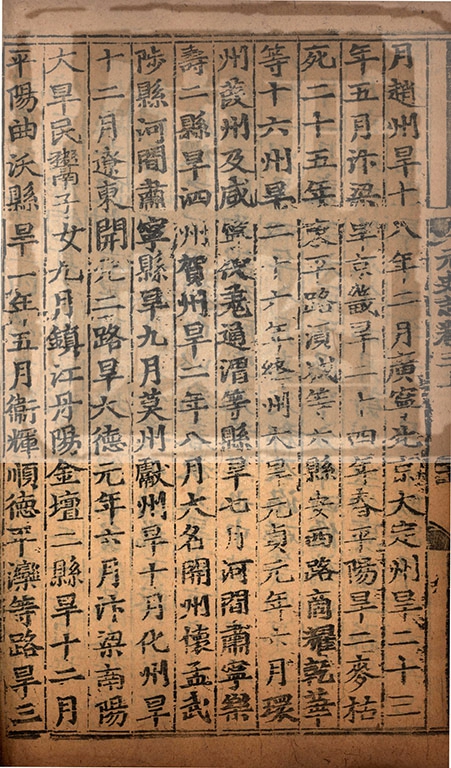 月趙州旱十八年二月廣寧北京大定州旱二十三
年五月汴梁旱京畿旱二十四年春平陽旱二麥枯
死二十五年東平路須城等六縣安西路商耀乾華
等十六州旱二十六年絳州大旱元貞元年六月環
州葭州及咸寧伏羌通渭等縣旱七月河間肅寧樂
壽二縣旱泗州賀州旱二年八月大名開州懷孟武
陟縣河間肅寧縣旱九月莫州獻州旱十月化州旱
十二月遼東開元二路旱大德元年六月汴梁南陽
大旱民鬻子女九月鎮江丹陽金壇二縣旱十二月
平陽曲沃縣旱二年五月衞輝順德平灤等路旱三
元史志卷三